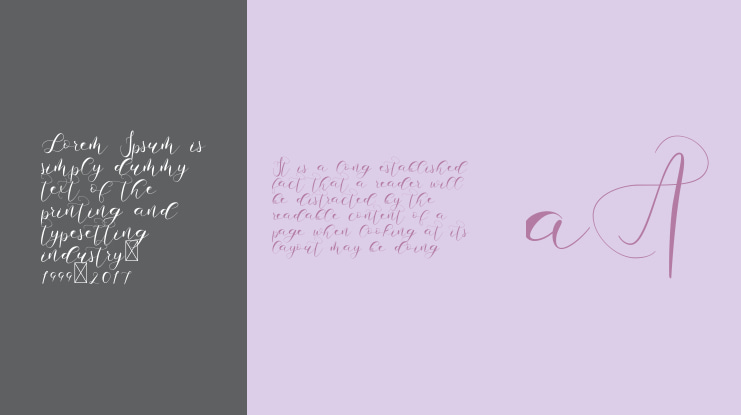 Lorem Ipsum is
simply dummy
text of the
printing and
typesetting
industry
1999 2017
It is a long established
fact that a reader will
be distracted by the
readable content of a
page when looking at its
layout may be doing
a A